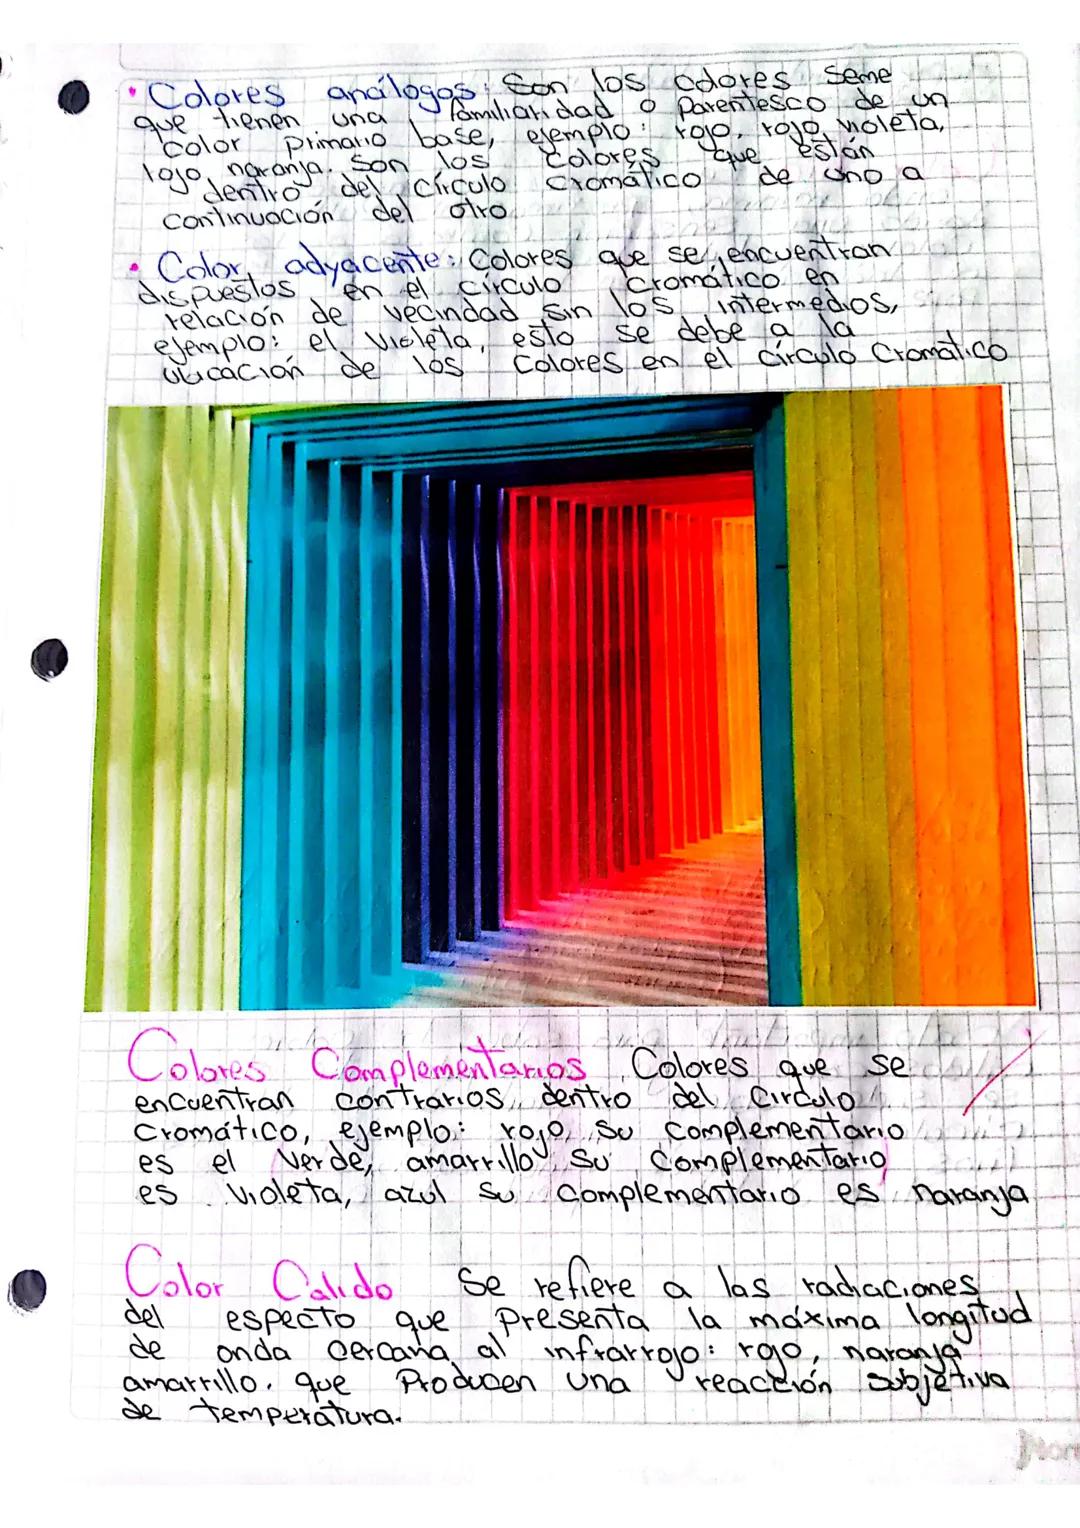 • Colores análogos: Son los colores seme
que tienen una familiaridad o parentesco de un
color primario base, ejemplo: rojo, rojo violeta,
rojo naranja. Son los colores que están
dentro del círculo cromático de uno a
continuación del otro
• Color adyacente: Colores que se encuentran
dispuestos en el círculo cromático en
relación de vecindad sin los intermedios,
ejemplo: el violeta, esto se debe a la
ubicación de los colores en el círculo cromático
Colores Complementarios Colores que se
encuentran contrarios dentro del circulo
cromático, ejemplo: rojo, su complementario
es el verde, amarrillo su complementario
es violeta, azul su complementario es naranja
Color Calido Se refiere a las radiaciones
del especto que presenta la máxima longitud
de onda cercana al infrarrojo: rojo, naranja
amarrillo. que producen una reacción subjetiva
de temperatura.
Nor